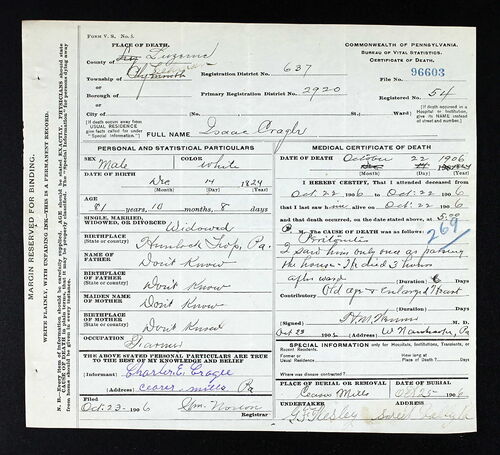 FORM V. S. No. 5.
PLACE OF DEATH.
County of Luzerne
Township of Plymouth
or
Borough of
or
City of
Registration District No. 637
Primary Registration District No. 2920
(No. St.; Ward)
COMMONWEALTH OF PENNSYLVANIA.
BUREAU OF VITAL STATISTICS.
CERTIFICATE OF DEATH.
File No. 96603
Registered No. 54
[If death occurs away from USUAL RESIDENCE give facts called for under "Special Information"]
[If death occurred in a Hospital or Institution, give its NAME instead of street and number.]
FULL NAME Isaac Cragle
PERSONAL AND STATISTICAL PARTICULARS
SEX Male
COLOR White
DATE OF BIRTH
Dec 14 1824
(Month) (Day) (Year)
AGE
81 years, 10 months, 8 days
SINGLE, MARRIED,
WIDOWED, OR DIVORCED Widowed
BIRTHPLACE
(State or country) Hunlock Twp, Pa.
NAME OF
FATHER Don't Know
BIRTHPLACE OF
FATHER
(State or country) Don't Know
MAIDEN NAME OF
MOTHER Don't Know
BIRTHPLACE OF
MOTHER
(State or country) Don't Know
OCCUPATION Farmer
THE ABOVE STATED PERSONAL PARTICULARS ARE TRUE
TO THE BEST OF MY KNOWLEDGE AND BELIEF
(Informant) Charles E. Cragle
(Address) Ceases Mills Pa
Filed Oct. 23- 1906 Wm. Norton
Registrar
MEDICAL CERTIFICATE OF DEATH
DATE OF DEATH October 22 1906
(Month) (Day) (Year)
I HEREBY CERTIFY, That I attended deceased
from Oct 22 1906 to Oct. 22 1906
that I last saw him alive on Oct 22 1906
and that death occurred, on the date stated above, at
P. M. The CAUSE OF DEATH was as follows:
269
I saw him only once as passing
the house - He died 3 hours
afterward
(Duration) Days
Contributory Old age & Enlarged Heart
(Signed) M. D.
Oct 23 1906 (Address) Pa
SPECIAL INFORMATION only for Hospitals, Institutions, Transients, or
Recent Residents.
Former or
Usual Residence
How Long at
Place of Death? Days
Where was disease contracted,
If not at place of death?
PLACE OF BURIAL OR REMOVAL
Ceases Mills
DATE OF BURIAL
Oct 25 1906
UNDERTAKER
(Address)
MARGIN RESERVED FOR BINDING.
WRITE PLAINLY, WITH UNFADING INK—THIS IS A PERMANENT RECORD.
N. B.—Every item of information should be carefully supplied. AGE should be stated EXACTLY. PHYSICIANS should state
CAUSE OF DEATH in plain terms, that it may be properly classified. The "Special Information" for persons dying away
from home should be given in every instance.